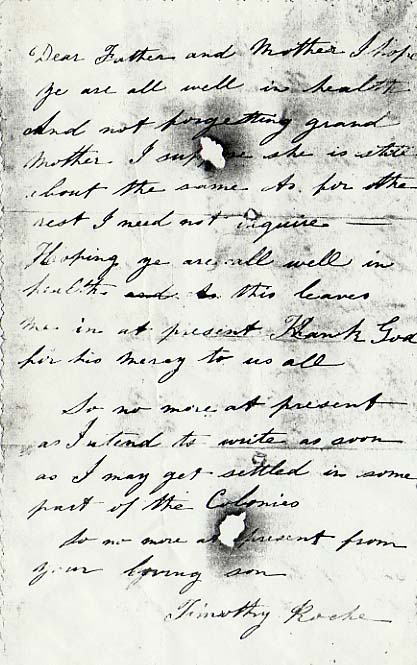 Dear Father and Mother I hope
ye are all well in health
And not forgetting grand
Mother. I suppose she is still
about the same As for the
rest I need not inquire —
Hoping ye are all well in
health and as this leaves
me in at present Thank God
for his mercy to us all
So no more at present
as I intend to write as soon
as I may get settled in some
part of the Colonies
So no more at present from
your loving son
Timothy Roche